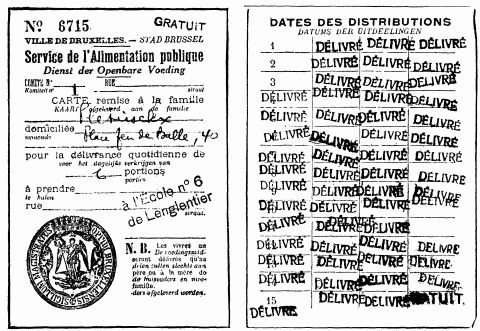 No 6715 GRATUIT
VILLE DE BRUXELLES. — STAD BRUSSEL
Service de l'Alimentation publique
Dienst der Openbare Voeding
COMITÉ No 1 RUE
Komiteit no straat
CARTE remise à la famille
KAART afgeleverd aan de familie
domiciliée Place Jeu de Balle, 40
wonende
pour la délivrance quotidienne de
voor het dagelijks verkrijgen van
6 portions
portiës
à prendre à l'École no 6
te halen
rue de Lenglentier
straat.
N. B. Les vivres ne
seront délivrés qu'au
père ou à la mère de
famille.
De voedingsmid-
delen zullen slechts aan
de huisvaders en moe-
ders afgeleverd worden.
DATES DES DISTRIBUTIONS
DATUMS DER UITDEELINGEN
1 DÉLIVRÉ DÉLIVRÉ DÉLIVRÉ
2 DÉLIVRÉ DÉLIVRÉ DÉLIVRÉ
3 DÉLIVRÉ DÉLIVRÉ DÉLIVRÉ
DÉLIVRÉ DÉLIVRÉ DÉLIVRÉ DÉLIVRÉ
DÉLIVRÉ DÉLIVRÉ DÉLIVRÉ DÉLIVRÉ
DÉLIVRÉ DÉLIVRÉ DÉLIVRÉ DÉLIVRÉ
DÉLIVRÉ DÉLIVRÉ DÉLIVRÉ DÉLIVRÉ
DÉLIVRÉ DÉLIVRÉ DÉLIVRÉ DÉLIVRÉ
DÉLIVRÉ DÉLIVRÉ DÉLIVRÉ DÉLIVRÉ
DÉLIVRÉ DÉLIVRÉ DÉLIVRÉ DÉLIVRÉ
DÉLIVRÉ DÉLIVRÉ DÉLIVRÉ
DÉLIVRÉ DÉLIVRÉ DÉLIVRÉ DÉLIVRÉ
DÉLIVRÉ DÉLIVRÉ DÉLIVRÉ DÉLIVRÉ
DÉLIVRÉ DÉLIVRÉ DÉLIVRÉ DÉLIVRÉ
15 DÉLIVRÉ DÉLIVRÉ GRATUIT
DÉLIVRÉ